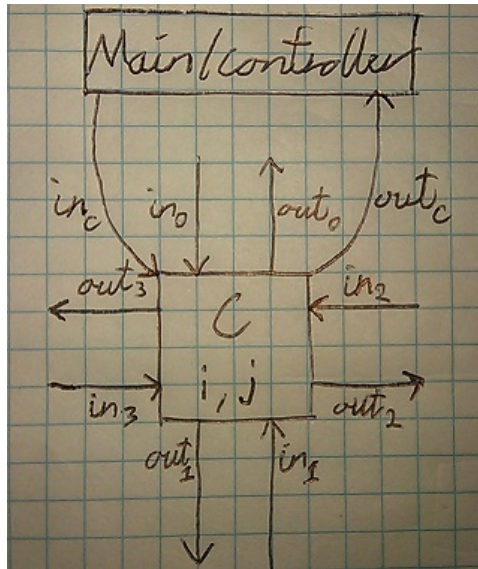 Main/controller
in_c in_0 out_0 out_c
out_3 in_2
C
i, j
in_3 out_2
out_1 in_1